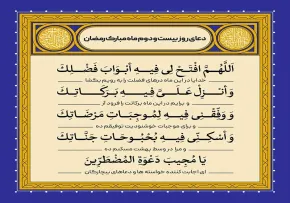 دعای روز بیست و دوم ماه مبارک رمضان
اَللّٰهُمَّ افْتَحْ لِی فِیهِ أَبْوَابَ فَضْلِکَ
خدایا در این ماه درهای فضلت را به رویم بگشا
وَ أَنْزِلْ عَلَیَّ فِیهِ بَرَکَاتِکَ
و برایم در این ماه برکاتت را فرود آر
وَ وَفِّقْنِی فِیهِ لِمُوجِبَاتِ مَرْضَاتِکَ
و برای موجبات خوشنودیت توفیقم ده
وَ أَسْکِنِّی فِیهِ بُحْبُوحَاتِ جَنَّاتِکَ
و مرا در وسط بهشت مسکنم ده
یَا مُجِیبَ دَعْوَةِ الْمُضْطَرِّینَ
ای اجابت کننده خواسته ها و دعاهای بیچارگان